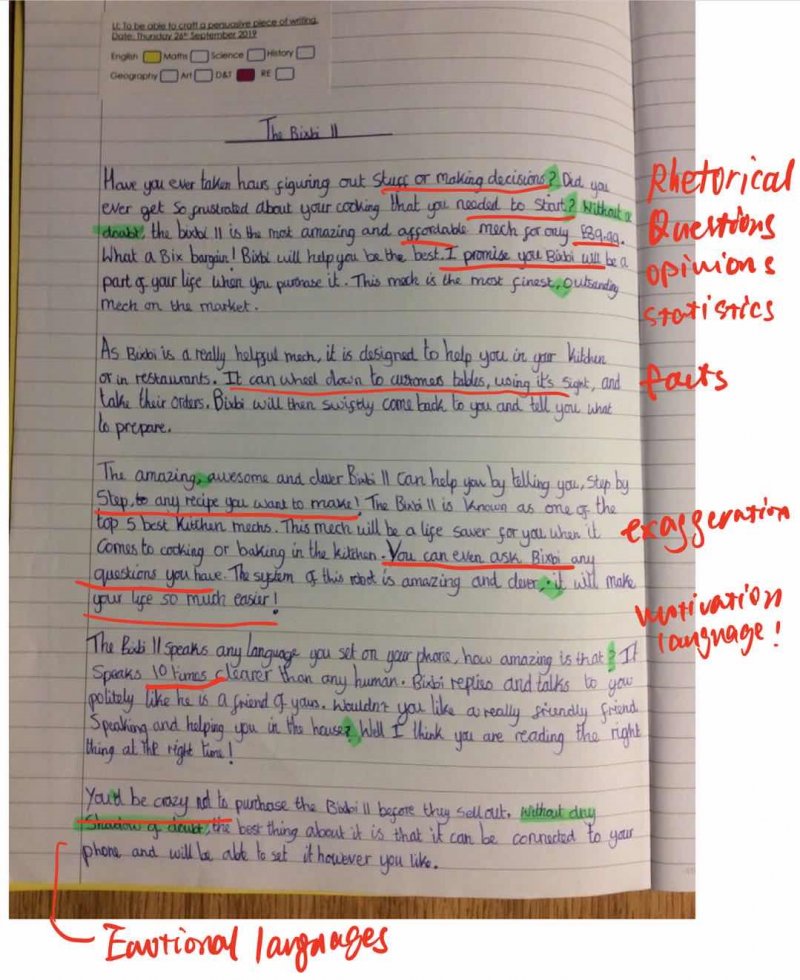 LI: To be able to craft a persuasive piece of writing.
Date: Thursday 26th September 2019
English Maths Science History
Geography Art D&T RE
The Bixbi II
Have you ever taken hours figuring out stuff or making decisions? Did you
ever get so frustrated about your cooking that you needed to start? Without a
doubt, the bixbi II is the most amazing and affordable mech for only £89.99.
What a Bix bargain! Bixbi will help you be the best. I promise you Bixbi will be a
part of your life when you purchase it. This mech is the most finest, outsanding
mech on the market.
Rhetorical
Questions
opinions
statistics
As Bixbi is a really helpful mech, it is designed to help you in your kitchen
or in restaurants. It can wheel down to customers tables, using it's sight, and
take their orders. Bixbi will then swiftly come back to you and tell you what
to prepare.
facts
The amazing, awesome and clever Bixbi II can help you by telling you, step by
step, to any recipe you want to make! The Bixbi II is known as one of the
top 5 best kitchen mechs. This mech will be a life saver for you when it
comes to cooking or baking in the kitchen. You can even ask Bixbi any
questions you have. The system of this robot is amazing and clever, it will make
your life so much easier!
exaggeration
motivation
language!
The Bixbi II speaks any language you set on your phone, how amazing is that? It
speaks 10 times clearer than any human. Bixbi replies and talks to you
politely like he is a friend of yours. Wouldn't you like a really friendly friend
speaking and helping you in the house? Well I think you are reading the right
thing at the right time!
You'd be crazy not to purchase the Bixbi II before they sell out. Without any
shadow of doubt, the best thing about it is that it can be connected to your
phone and will be able to set it however you like.
Emotional languages